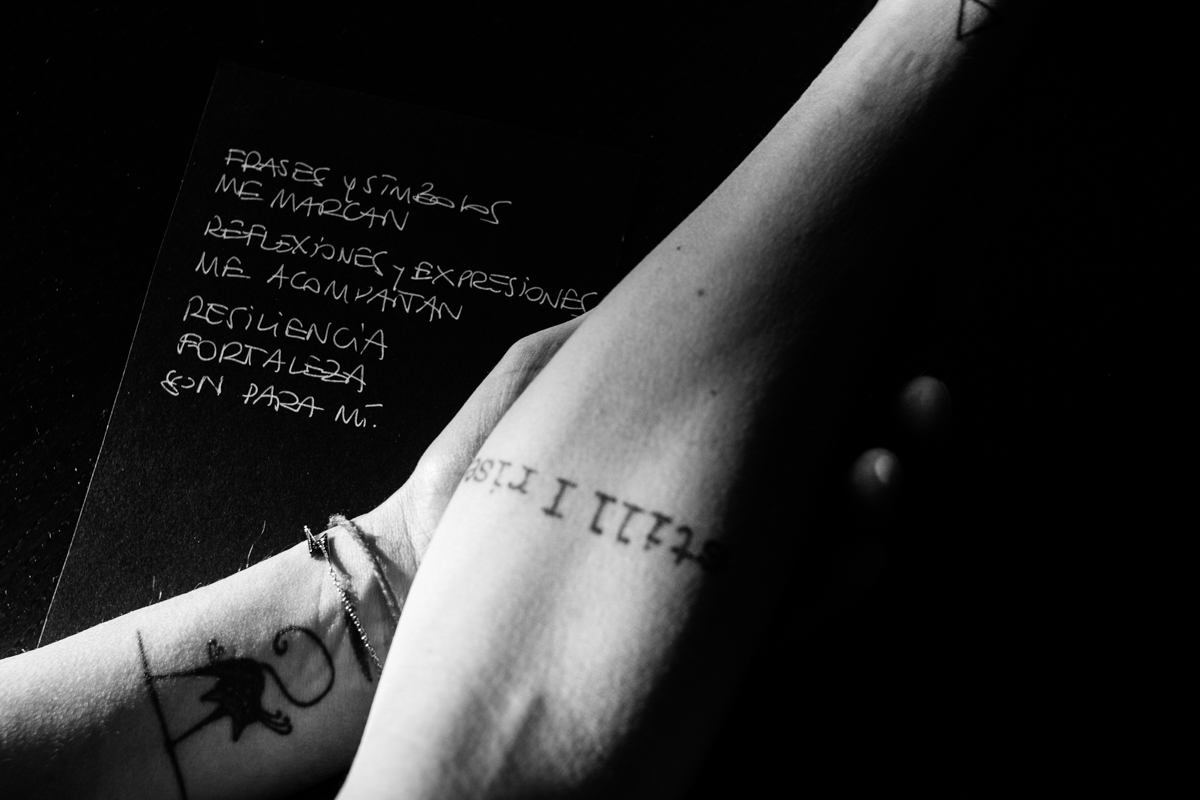 FRASES y SÍMBOLOS
ME MARCAN
REFLEXIONES y EXPRESIONES
ME ACOMPAÑAN
RESILIENCIA
FORTALEZA
SON PARA MÍ.
still I rise